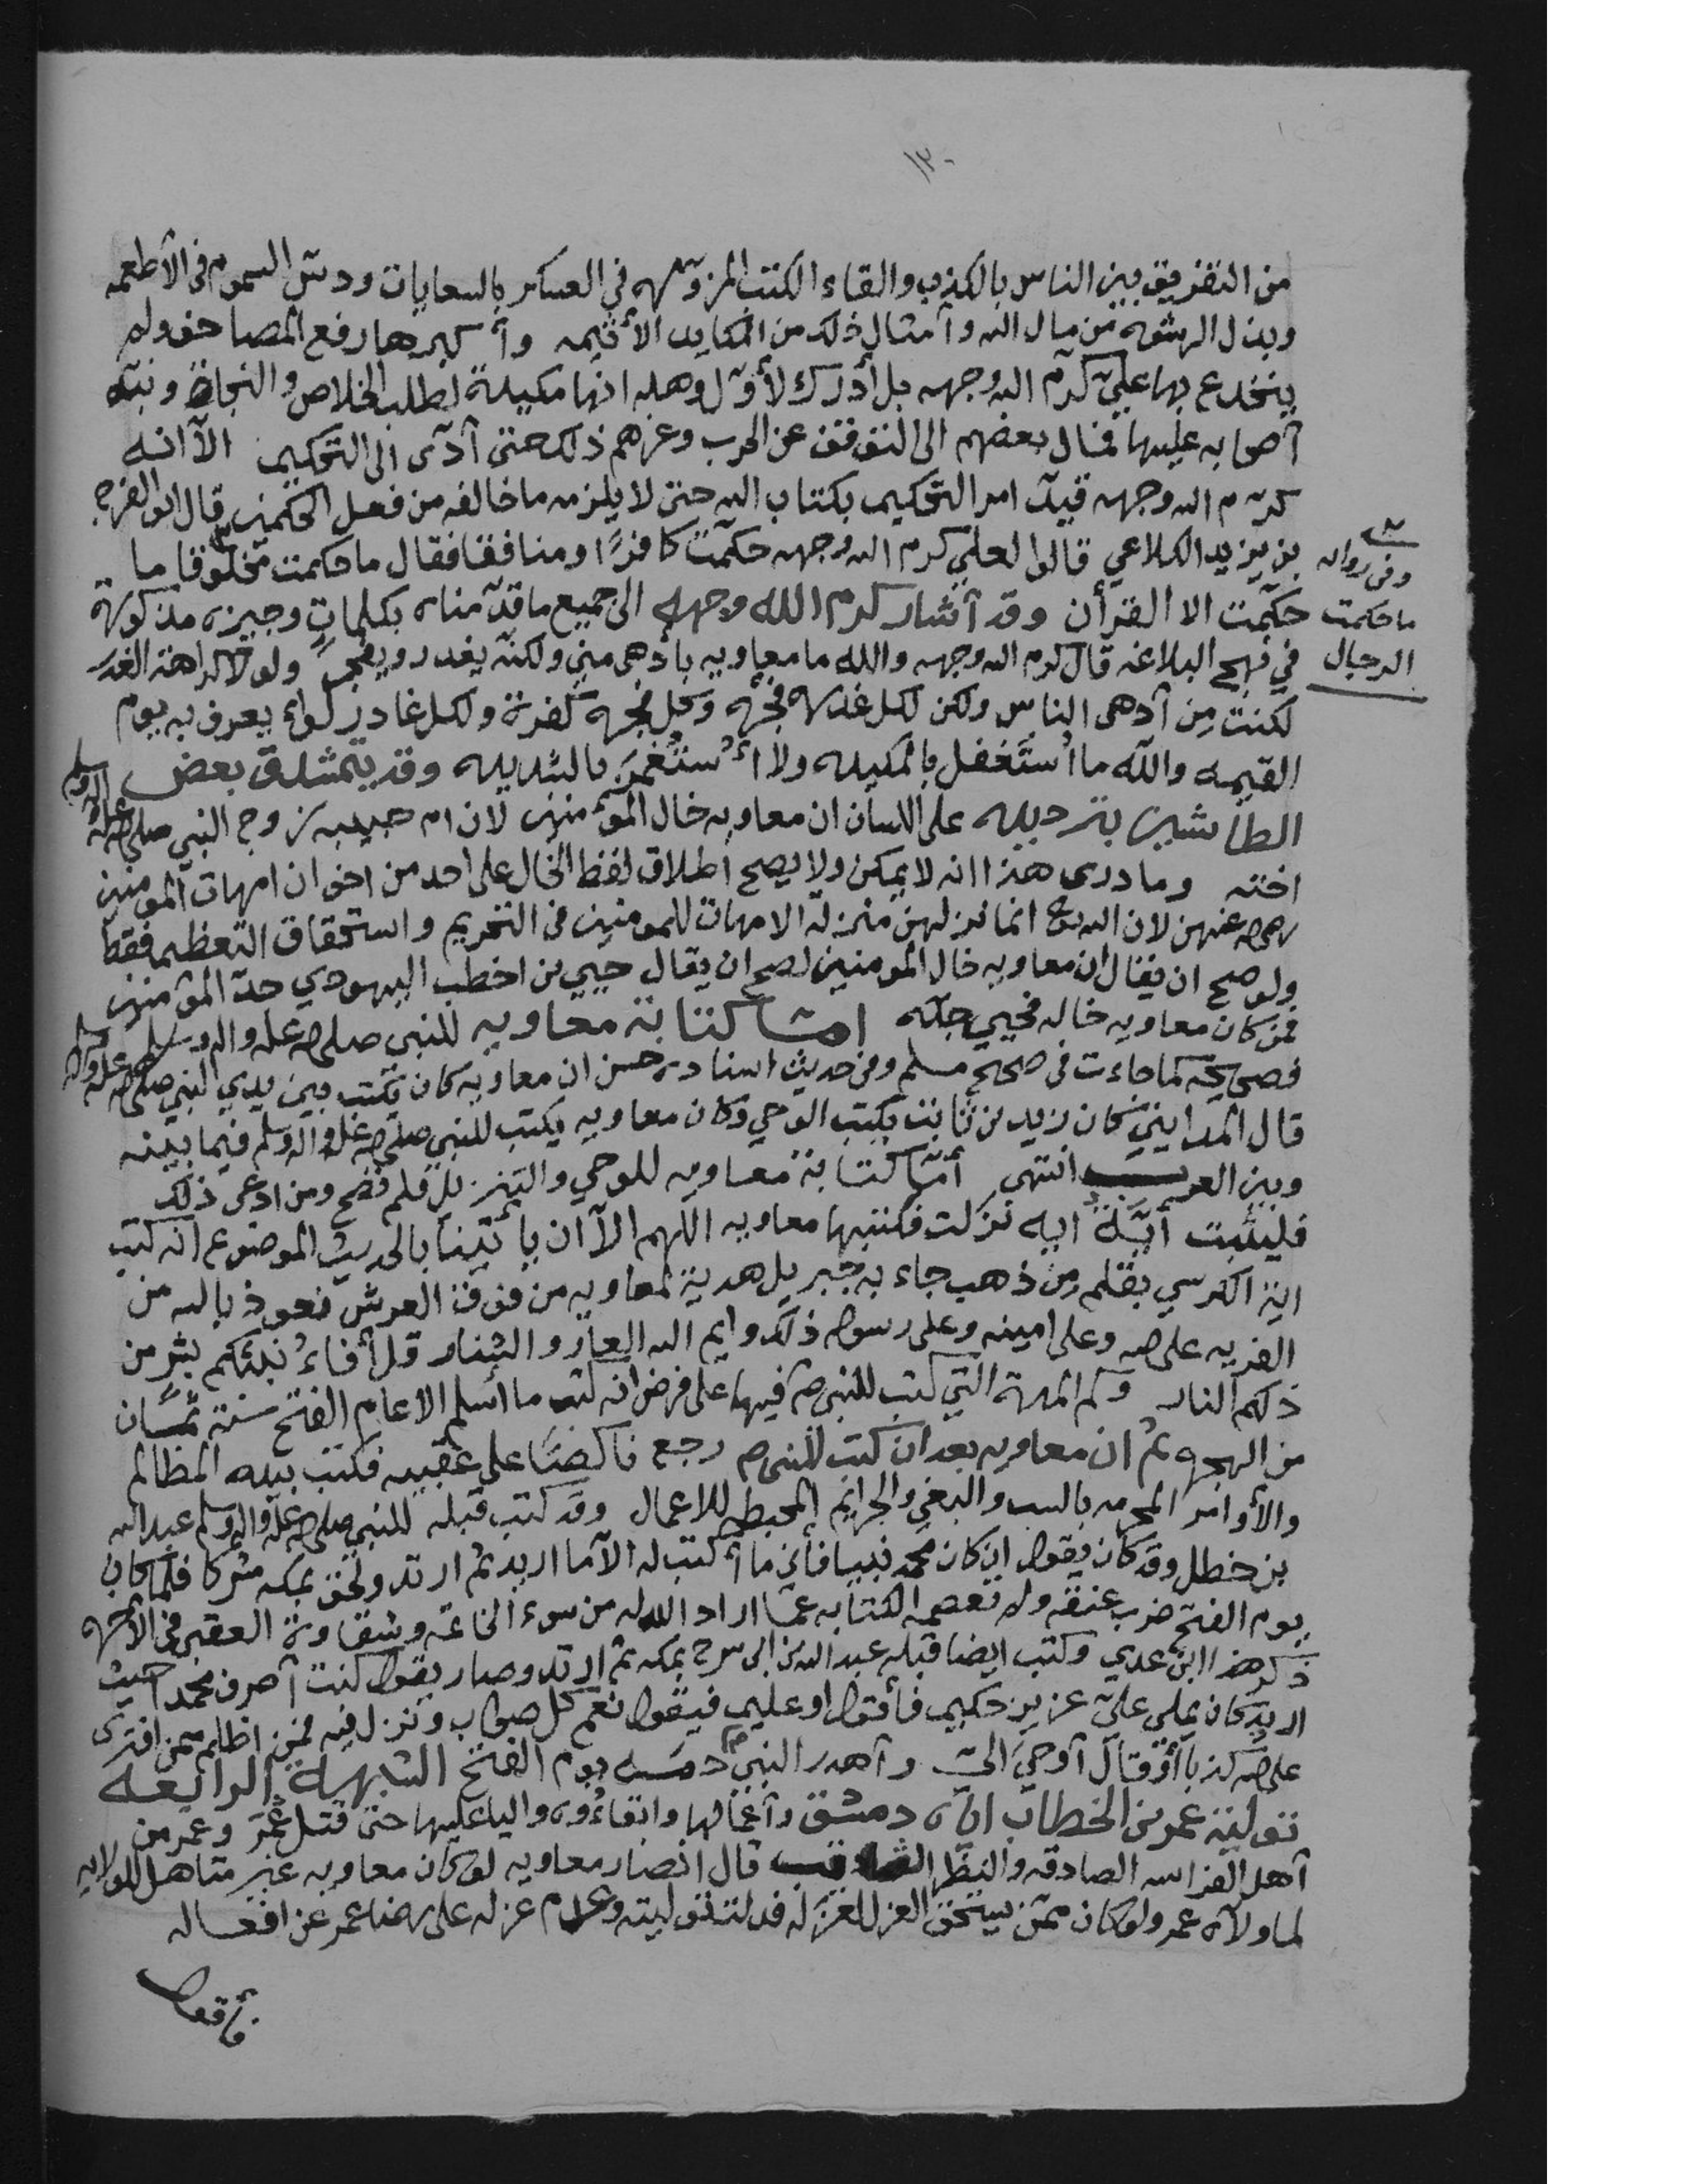 ١٣٠
من التفريق بين الناس بالكذب والقاء الكتب المزوره في العسكر بالسعايات ودس السموم في الأطعمه
وبذل الرشوه من مال الله وأمثال ذلك من المكايد الأثيمه وأكبرها رفع المصاحف ولم
ينخدع بها علي كرم الله وجهه بل أدرك لأول وهله انها مكيدة لطلب الخلاص والنجاة ونبه
أصحابه عليها فمال بعضهم الى التوقف عن الحرب وغرهم ذلك حتى أدى الى التحكيم الا انه
كرم الله وجهه قيد امر التحكيم بكتاب الله حتى لا يلزمه ما خالفه من فعل الحكمين قال ابو الفرج
بن يزيد الكلاعي قالوا لعلي كرم الله وجهه حكمت كافرًا ومنافقا فقال ما حكمت مخلوقا ما
حكمت الا القرأن وقد أشار كرم الله وجهه الى جميع ما قدمناه بكلمات وجيزه مذكورة
في نهج البلاغه قال كرم الله وجهه والله ما معاويه بأدهى مني ولكنه يغدر ويفجر ولولا كراهة الغدر
لكنت من أدهى الناس ولكن لكل غدره فجره وكل فجره كفرة ولكل غادر لواء يعرف به يوم
القيمه والله ما أستغفل بالمكيده ولا أستغمز بالشديده وقد يتمشدق بعض
الطائشين بترديده على اللسان ان معاويه خال المؤمنين لان ام حبيبه زوج النبي صلى الله عليه واله وسلم
اخته وما درى هذا انه لا يمكن ولا يصح اطلاق لفظ الخال على احد من اخوان امهات المومنين
رضي الله عنهن لان الله تع انما نزلهن منزلة الامهات للمومنين في التحريم واستحقاق التعظيم فقط
ولو صح ان يقال ان معاويه خال المومنين لصح ان يقال حيي بن اخطب اليهودي جد المؤمنين
فمن كان معاويه خاله فحيي جده امّا كتابة معاويه للنبي صلى الله عليه واله وسلم
فصحيحه كما جاءت في صحيح مسلم وفي حديث اسناده حسن ان معاويه كان يكتب بين يدي النبي صلى الله عليه واله وسلم
قال المدايني كان زيد بن ثابت يكتب الوحي وكان معاويه يكتب للنبي صلى الله عليه واله وسلم فيما بينه
وبين العرب انتهى أمّا كتابة معاويه للوحي والتنزيل فلم تصح ومن ادعى ذلك
فليثبت أيّة ايه نزلت فكتبها معاويه اللهم الا ان يأتينا بالحديث الموضوع انه كتب
اية الكرسي بقلم من ذهب جاء به جبريل هدية لمعاويه من فوق العرش نعوذ بالله من
الفريه على الله وعلى امينه وعلى رسوله ذلك وايم الله العار والشنار قل أفاءُ نبئكم بشر من
ذلكم النار وكم المدة التي كتب للنبي ص فيها على فرض انه كتب ما أسلم الا عام الفتح سنة ثمان
من الهجره ثم ان معاويه بعد ان كتب للنبي ص رجع ناكصًا على عقبيه فكتب بيده المظالم
والأوامر المحرمه بالسب والبغي والجرايم المحبطه للاعمال وقد كتب قبله للنبي صلى الله عليه واله وسلم عبد الله
بن خطل وقد كان يقول ان كان محمد نبيا فأني ما أكتب له الا ما اريد ثم ارتد ولحق بمكه مشركا فلما كان
يوم الفتح ضرب عنقه ولم تعصمه الكتابه عما اراد الله له من سوء الخاتمه وشقاوة العقبى في الأخره
ذكر هذا ابن عدي وكتب ايضا قبله عبد الله بن ابي سرح بمكه ثم ارتد وصار يقول كنت أصرف محمدا حيث
اريد كان يملي عليّ عزيز حكيم فأقول او عليم فيقول نعم كل صواب ونزل فيه فمن اظلم ممن افترى
على الله كذبا أو قال أوحي اليّ وأهدر النبي ص دمه يوم الفتح الشبهة الرابعة
تولية عمر بن الخطاب اياه دمشق وأعمالها وابقاءُوه واليا عليها حتى قتل عمر وعمر من
أهل الفراسه الصادقه والنظر الثاقب قال انصار معاويه لو كان معاويه غير متأهل للولايه
لما ولاه عمر ولو كان ممن يستحق العزل لعزله فدلت توليته وعدم عزله على رضا عمر عن افعاله
وفي روايه
ما حكمت
الرجال